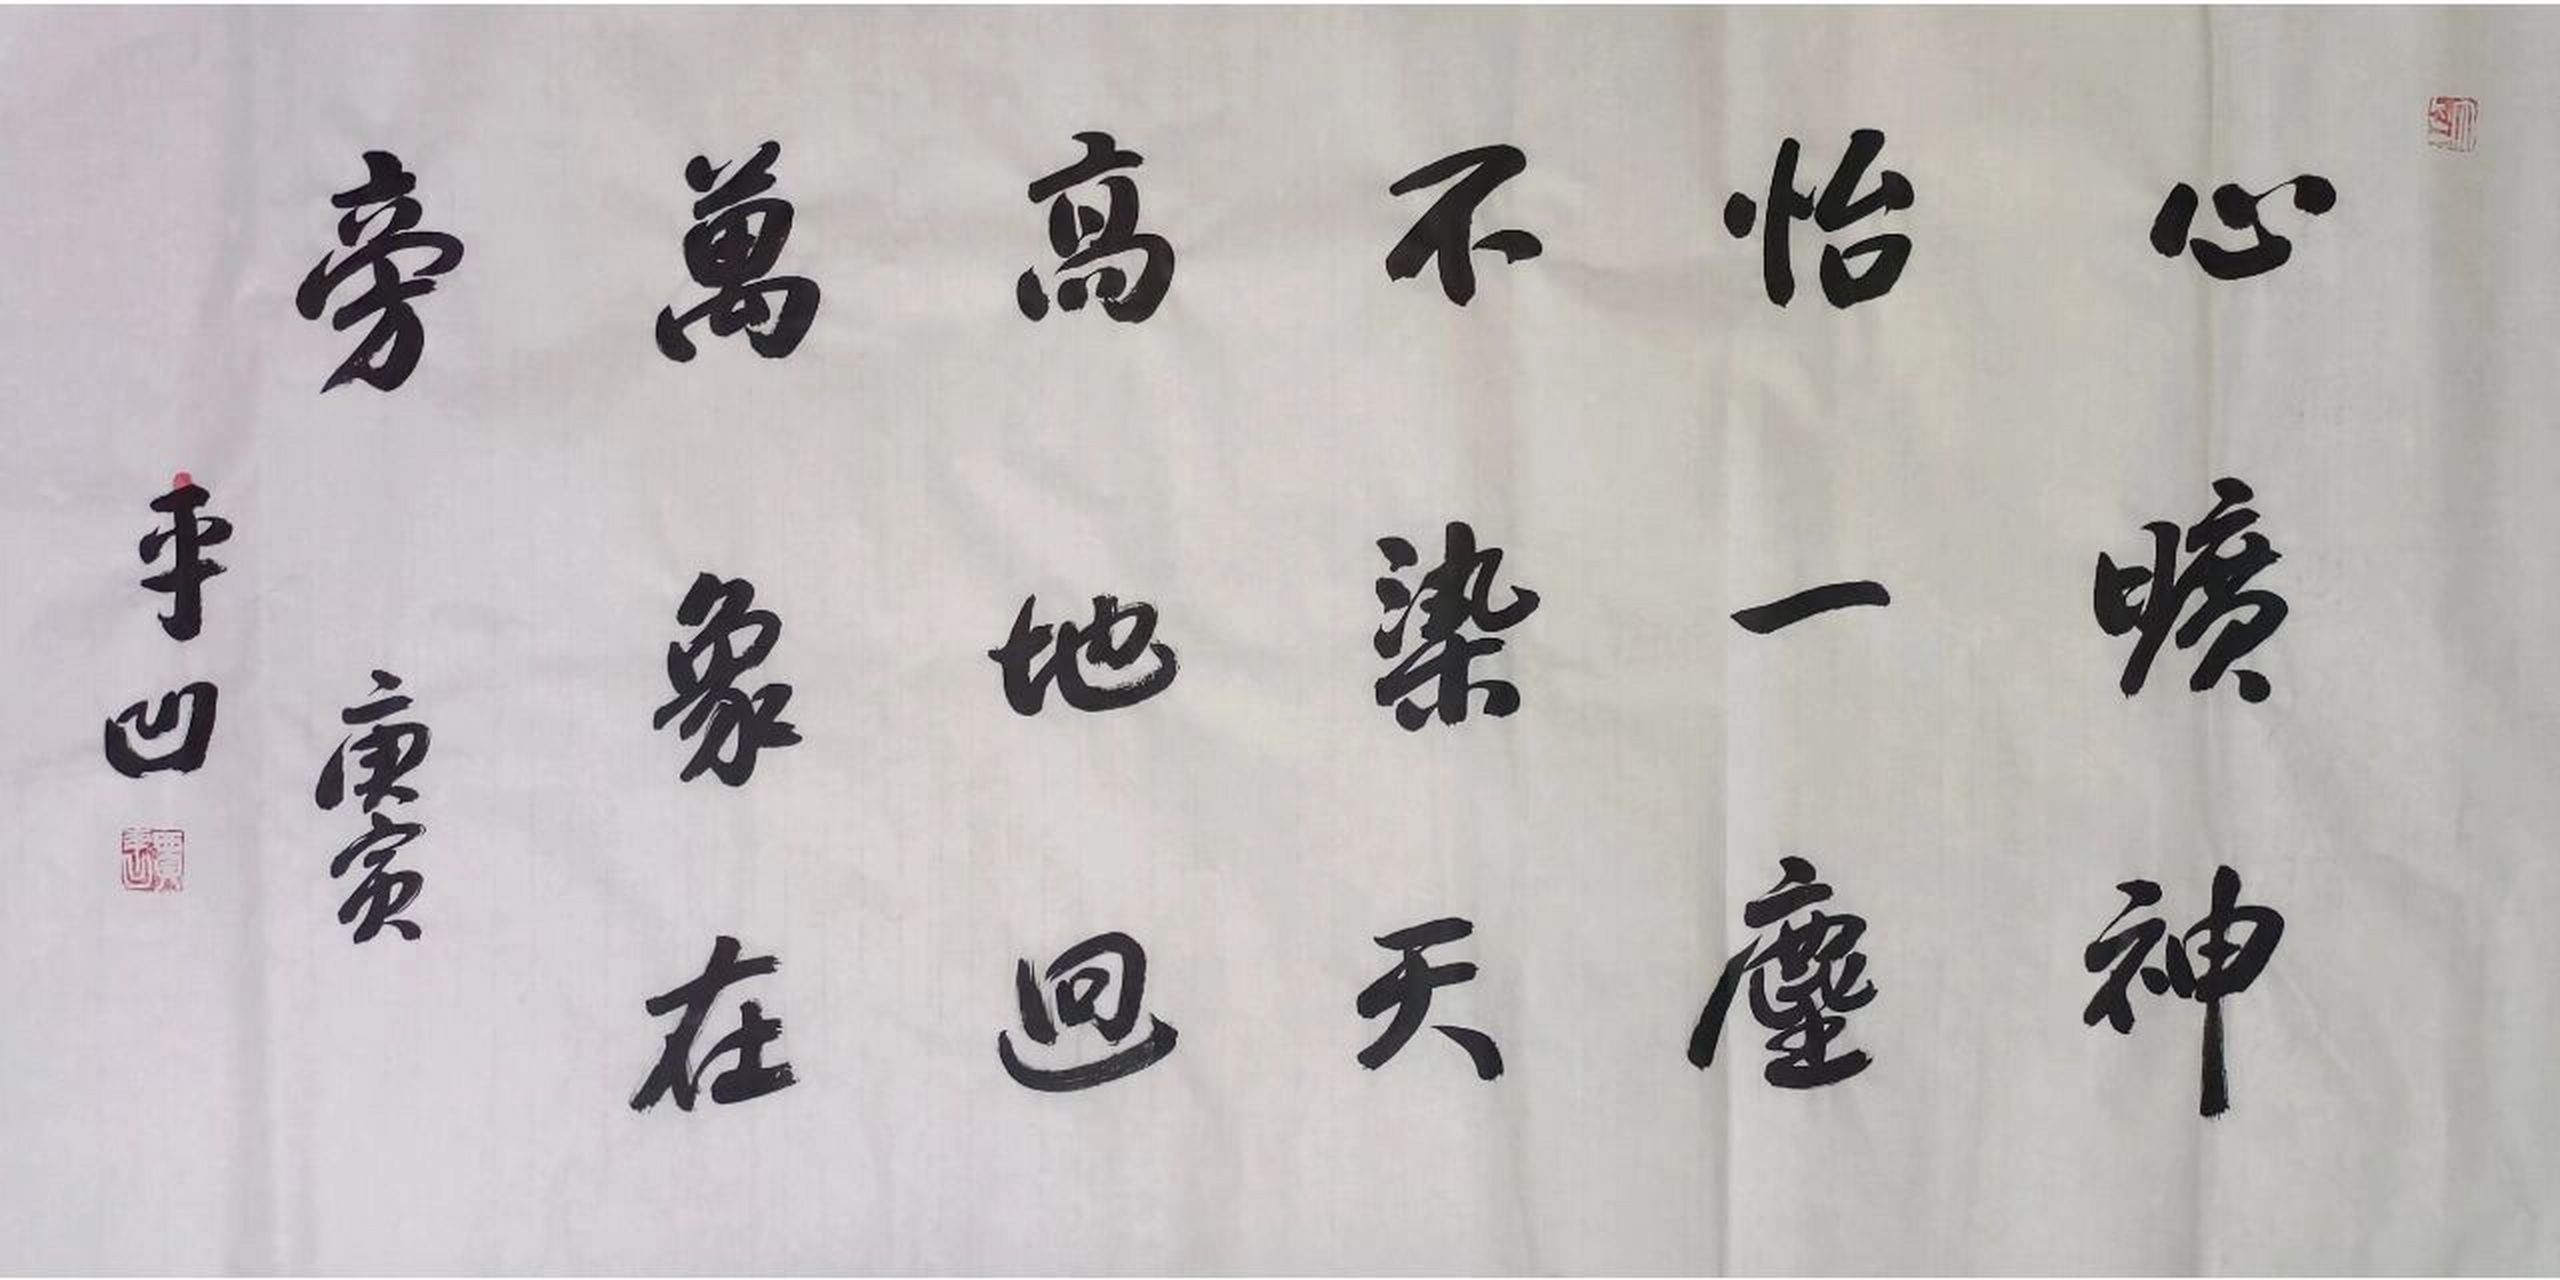 心曠神
怡一塵
不染天
高地迥
萬象在
旁 庚寅
平凹